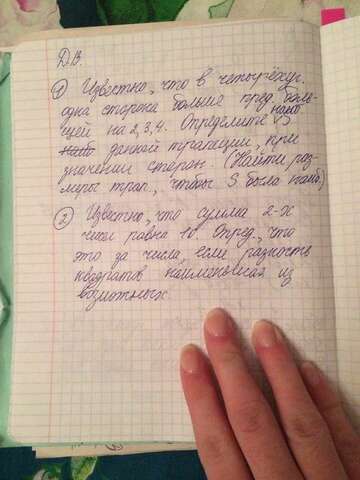 Д.В.
① Известно, что в четырёхуг.
одна сторона больше пред. боль-
щей на 2,3,4. Определите наиб S
данной трапеции, при
значении сторон. (Найти раз-
меры трап., чтобы S была наиб)
② Известно, что сумма 2-х
чисел равна 10. Опред., что
это за числа, если разность
квадратов наименьшая из
возможных.